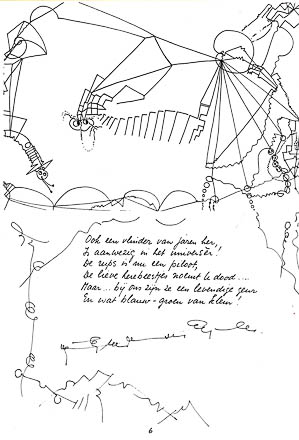 Ook een vlinder van jaren her,
Is aanwezig in het universer!
De rups is nu een piloot,
De lieve herebeestjes noemt ge dood....
Maar... bij ons zijn ze een levendige geur
En wat blauw-groen van kleur!
6